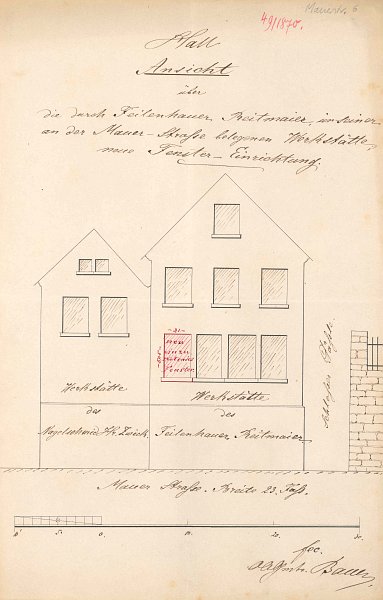 Mauerstr. 6
49/1870.
Hall
Ansicht
über
die durch Feilenhauer Reitmaier, in seiner
an der Mauer-Strasse belegenen Werkstätte,
neue Fenster-Einrichtung.
neu
Fenster
Werkstätte
Werkstätte
des
des
Nagelschmid Zwick.
Feilenhauer Reitmaier
Mauer Strasse. Breite 23. Fuss.
0 5. 0 10. 20. 30.
fec.
Bauer